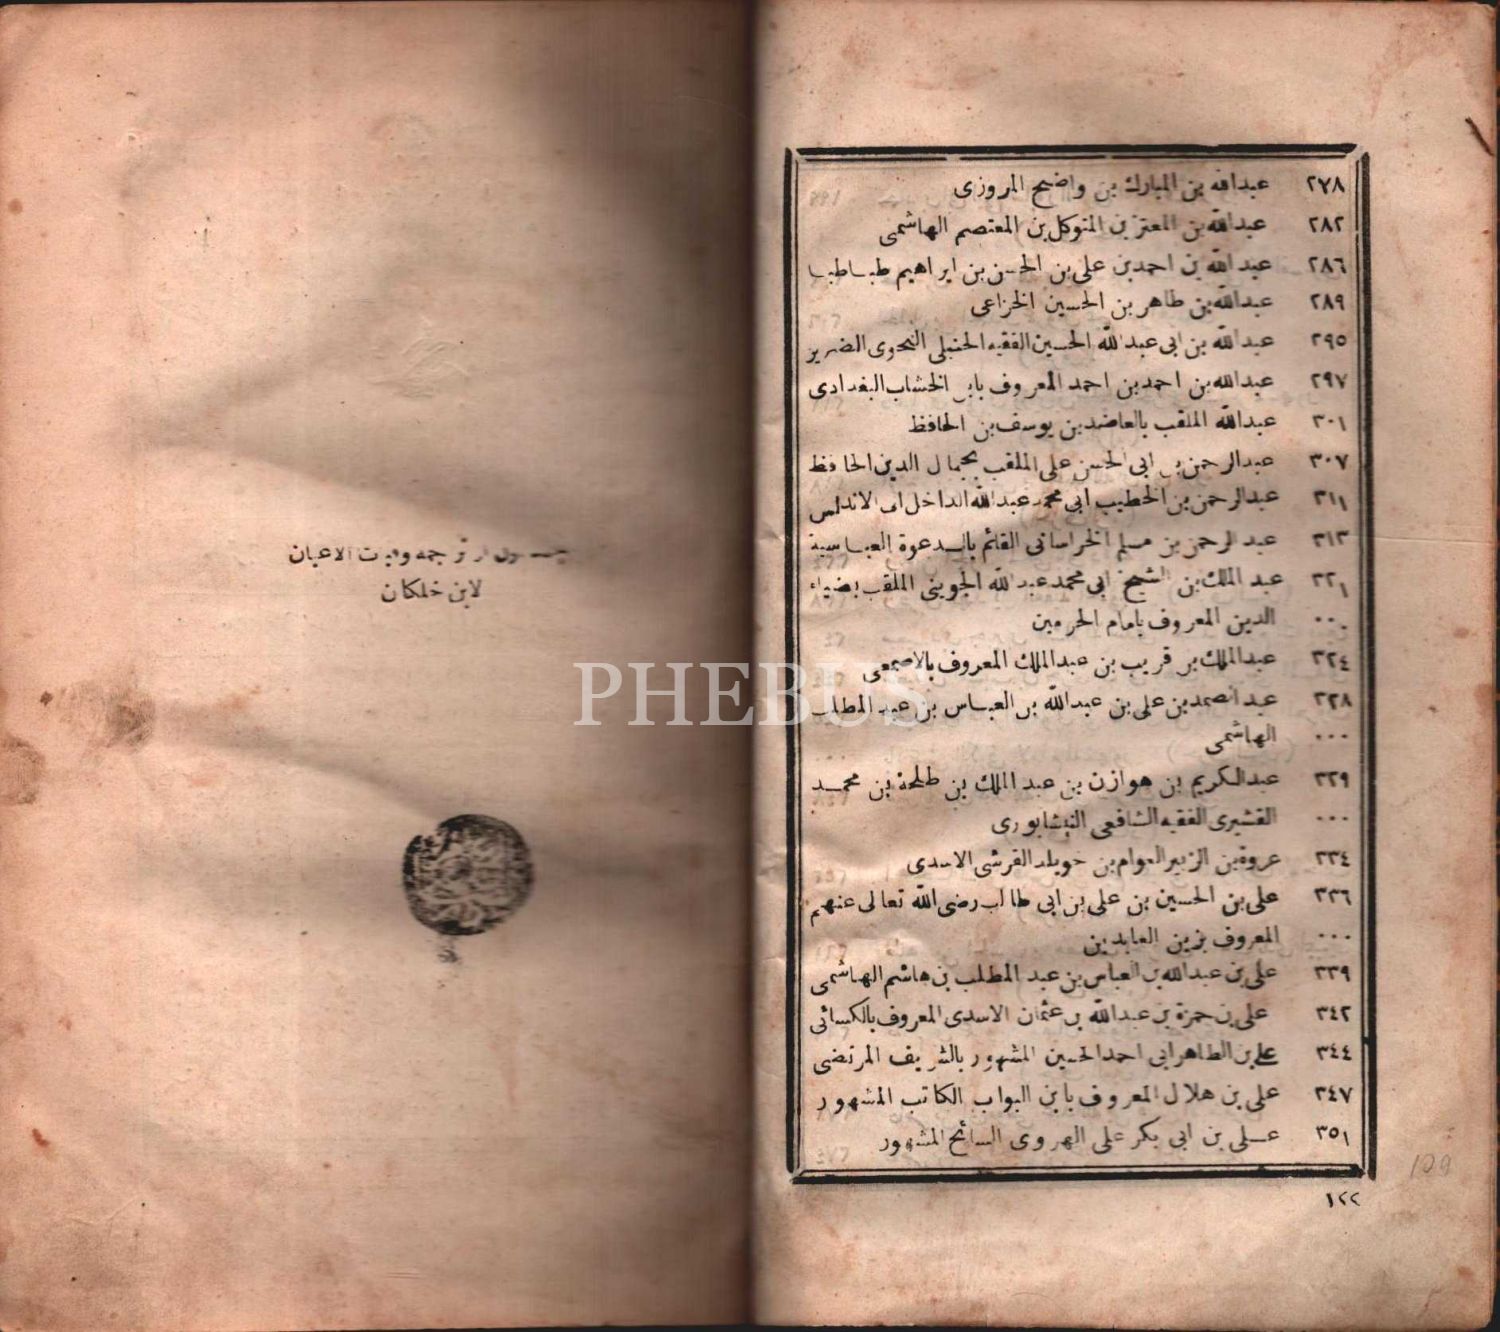 ٢٧٨ عبدالله بن المبارك بن واضح المروزى
٢٨٢ عبدالله بن المعتز بن المتوكل بن المعتصم الهاشمى
٢٨٦ عبدالله بن احمد بن على بن الحسن بن ابراهيم طباطبا
٢٨٩ عبدالله بن طاهر بن الحسين الخزاعى
٢٩٥ عبدالله بن ابى عبدالله الحسين الفقيه الحنبلى النحوى الضرير
٢٩٧ عبدالله بن احمد بن احمد المعروف بابن الخشاب البغدادى
٣٠١ عبدالله الملقب بالعاضد بن يوسف بن الحافظ
٣٠٧ عبدالرحمن بن ابى الحسن على الملقب بجمال الدين الحافظ
٣١١ عبدالرحمن بن الخطيب ابى محمد عبدالله الداخل الاندلس
٣١٣ عبدالرحمن بن مسلم الخراسانى القائم بالدعوة العباسية
٣٢١ عبد الملك بن الشيخ ابى محمد عبدالله الجوينى الملقب بضياء
٠٠٠ الدين المعروف بامام الحرمين
٣٢٤ عبدالملك بن قريب بن عبدالملك المعروف بالاصمعى
٣٢٨ عبد الصمد بن على بن عبدالله بن العباس بن عبد المطلب
٠٠٠ الهاشمى
٣٢٩ عبدالكريم بن هوازن بن عبد الملك بن طلحة بن محمد
٠٠٠ القشيرى الفقيه الشافعى النيشابورى
٣٣٤ عروة بن الزبير العوام بن خويلد القرشى الاسدى
٣٣٦ على بن الحسين بن على بن ابى طالب رضى الله تعالى عنهم
٠٠٠ المعروف بزين العابدين
٣٣٩ على بن عبدالله بن العباس بن عبد المطلب بن هاشم الهاشمى
٣٤٢ على بن حمزة بن عبدالله بن عثمان الاسدى المعروف بالكسائى
٣٤٤ على بن الطاهر ابى احمد الحسين المشهور بالشريف المرتضى
٣٤٧ على بن هلال المعروف بابن البواب الكاتب المشهور
٣٥١ على بن ابى بكر على الهروى السائح المشهور
١٢٢
ترجمه وفيات الاعيان
لابن خلكان
PHEBUS